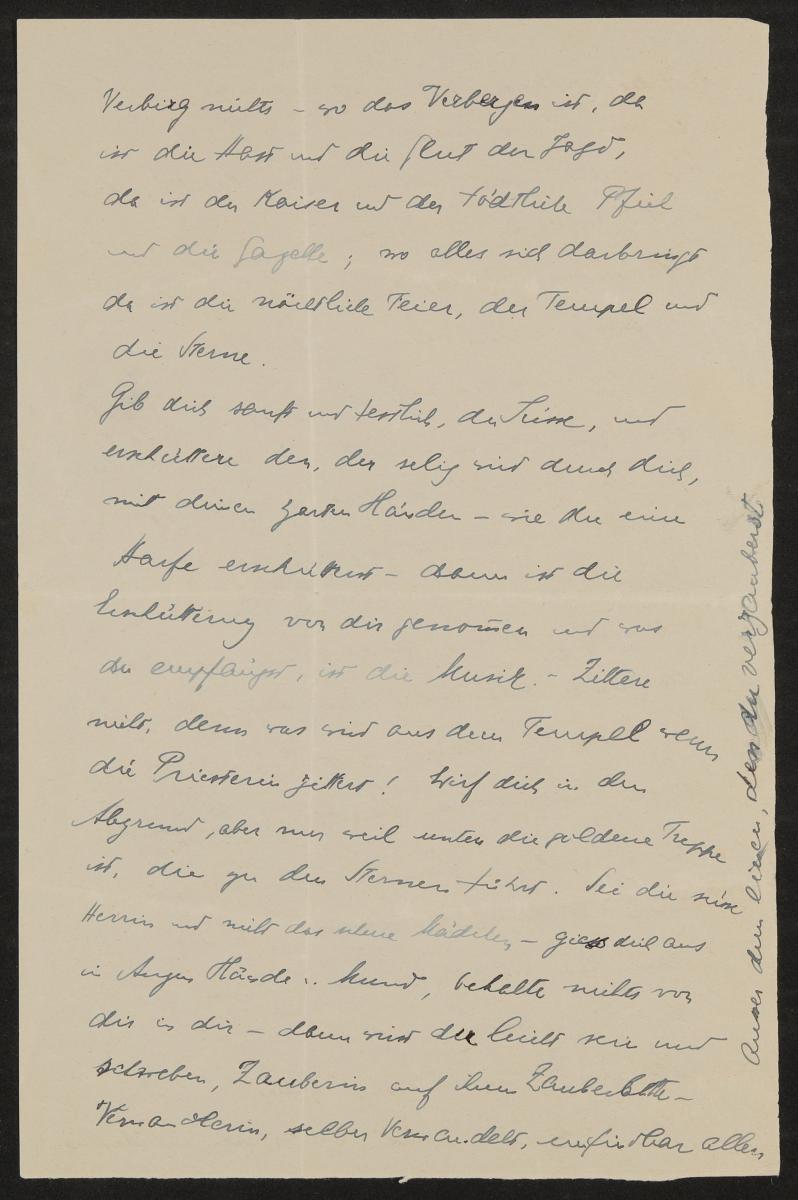 Verbirg nichts – wo das Verbergen ist, da
ist die Hast und die Glut der Jagd,
da ist der Kaiser und der tödtliche Pfeil
und die Gazelle; wo alles sich darbringt
da ist die nächtliche Feier, der Tempel und
die Sterne.
Gib dich sanft und festlich, du Süsse, und
erschüttere den, der selig wird durch dich,
mit deinen zarten Händen – wie du eine
Harfe erschütterst – dann ist die
Erschütterung von dir genom̅en und was
du empfängst, ist die Musik. – Zittere
nicht, denn was wird aus dem Tempel wenn
die Priesterin zittert! Wirf dich in den
Abgrund, aber nur weil unten die goldene Treppe
ist, die zu den Sternen führt. Sei die süsse
Herrin und nicht das Mädchen – giess dich aus
in Augen Hände u. Mund, behalte nichts von
dir in dir – dann wirst du leicht sein und
schweben, Zauberin auf ihrem
Verwandlerin, selber Verwandelt, unfindbar allen
ausser dem einen, den du verzauberst